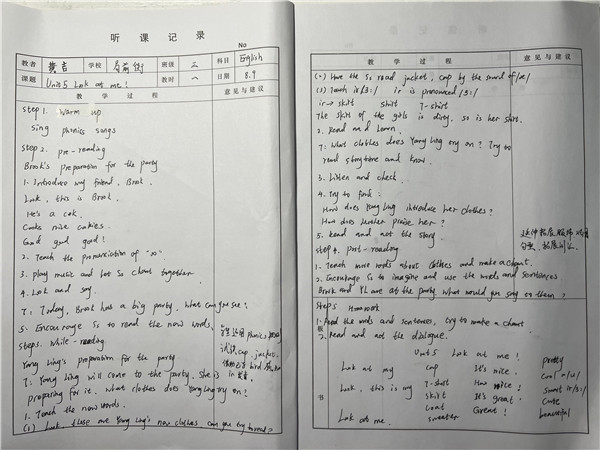 听 课 记 录
No
教者 黄吉 学校 局前街 班级 三 科目 English
课题 Unit 5 Look at me! 教时 一 日期 8.9
教 学 过 程 意见与建议
Step 1. Warm up
Sing phonics songs
Step 2. pre-reading
Brook's preparation for the party
1. Introduce my friend, Brook.
Look, this is Brook.
He's a cook.
Cooks nice cookies.
Good good good!
2. Teach the pronunciation of "oo"
3. play music and let Ss chant together
4. Look and say.
T: Today, Brook has a big party. What can you see?
5. Encourage Ss to read the new words.
Step 3. While-reading
Yang Ling's preparation for the party
T: Yang Ling will come to the party. She is
preparing for it. What clothes does Yang Ling try on?
1. Teach the new words.
(1) Look, these are Yang Ling's new clothes. Can you try to read?
phonics
cap, jacket,
教 学 过 程 意见与建议
(2) Have the Ss read jacket, cap by the sound of /æ/
(3) Teach ir /3:/ ir is pronounced /3:/
ir → skirt shirt T-shirt
The skirt of the girls is dirty, so is her shirt.
2. Read and learn.
T: What clothes does Yang Ling try on? Try to
read storytime and know.
3. Listen and check.
4. Try to find:
How does Yang Ling introduce her clothes?
How does Mother praise her?
5. Read and act the story.
Step 4. Post-reading
1. Teach more words about clothes and make a chant.
2. Encourage Ss to imagine and use the words and sentences
Brook and YL are at the party. What would you say to them?
延伸拓展服饰词汇
句型,拓展
Step 5 Homework
1. Read the words and sentences, try to make a chant.
2. Read and act the dialogue.
板
书
Unit 5 Look at me!
Look at my cap It's nice. pretty
Look, this is my T-shirt How nice! cool
skirt It's great! smart ir/3:/
coat Great! cute
Look at me. sweater beautiful